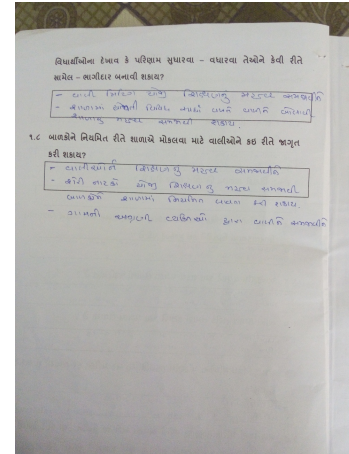 વિદ્યાર્થીઓના દેખાવ કે પરિણામ સુધારવા – વધારવા તેઓને કેવી રીતે
સામેલ – ભાગીદાર બનાવી શકાય?
- વાલી મિટિંગ યોજી શિક્ષણનું મહત્વ સમજાવીને
- શાળામાં યોજાતી વિવિધ વાલીને બોલાવી
શિક્ષણનું મહત્વ સમજાવી શકાય.
૧.૮ બાળકોને નિયમિત રીતે શાળાએ મોકલવા માટે વાલીઓને કઇ રીતે જાગૃત
કરી શકાય?
- વાલીઓને શિક્ષણનું મહત્વ સમજાવીને
- શેરી નાટકો યોજી શિક્ષણનું મહત્વ સમજાવી
બાળકોને શાળામાં નિયમિત કરી શકાય.
- ગામની અગ્રણી વ્યક્તિઓ દ્વારા વાલીને સમજાવીને